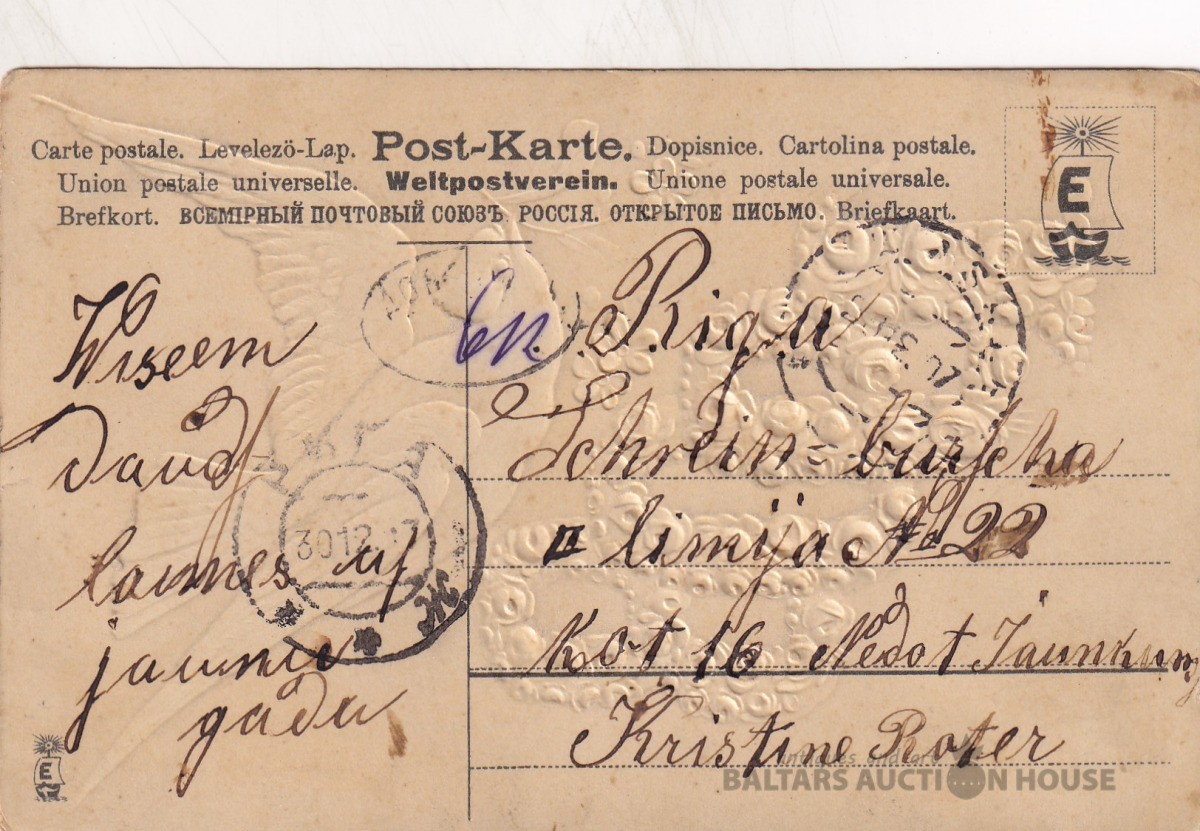 Carte postale. Levelezö-Lap. Post-Karte. Dopisnice. Cartolina postale.
Union postale universelle. Weltpostverein. Unione postale universale.
Brefkort. ВСЕМІРНЫЙ ПОЧТОВЫЙ СОЮЗЪ. РОССІЯ. ОТКРЫТОЕ ПИСЬМО. Briefkaart.
E
Wiseem
daudſ
laimes uſ
jaunu
gadu
E
вп. Riga
Schrein-buſcha
II linija № 22
Kot 16 Nedot Jaunkung
Kristine Roter
30 12
BALTARS AUCTION HOUSE